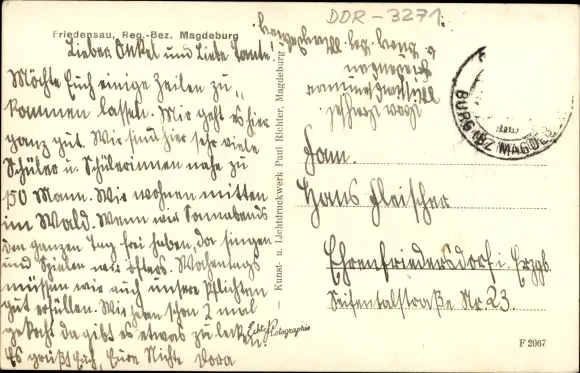 DDR-3271
Friedensau, Reg.-Bez. Magdeburg
Lieber Onkel und Liebe Tante!
Möchte Euch einige Zeilen zu
kommen lassen. Mir geht es hier
ganz gut. Wir sind hier sehr viele
Schüler u. Schülerinnen nahe zu
150 Mann. Wir wohnen mitten
im Wald. Wenn wir Sonnabends
den ganzen Tag frei haben, da singen
und Spielen wir öfters. Wochentags
müssen wir auch unsere Pflichten
gut erfüllen. Wir haben schon 2 mal
gekocht da gibt es etwas zu lecken.
Es grüßt Euch, Eure Nichte Dora
Friedensau
b. Burg, Bez. Magdeburg
Kunst- u. Lichtdruckwerk Paul Richter, Magdeburg
BURG (BZ MAGDEB
Fam.
Hans Fleischer
Ehrenfriedersdorf i. Erzgb.
Seifentalstraße Nr. 23.
Echte Photographie
F 2067